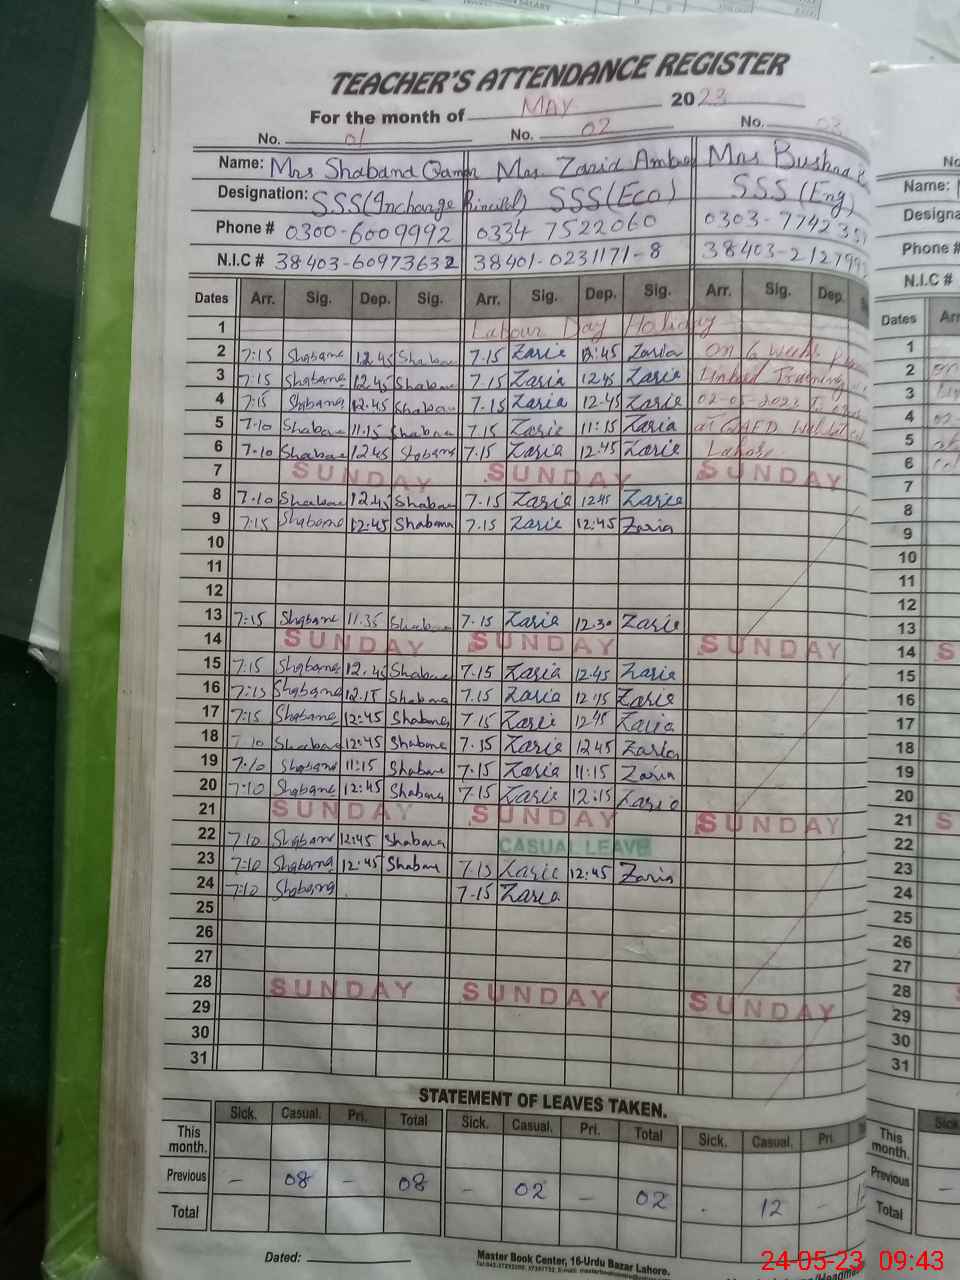 TEACHER'S ATTENDANCE REGISTER
For the month of MAY 2023
No. 01 No. 02 No. 03
Name: Mrs Shabana Qamar Mrs. Zaria Mrs Bushra
Designation: SSS(Incharge Principal) SSS(Eco) SSS(Eng)
Phone # 0300-6009992 0334 7522060 0303-7742
N.I.C # 38403-6097363 2 38401-0231171-8 38403-2127
Dates Arr. Sig. Dep. Sig. Arr. Sig. Dep. Sig. Arr. Sig. Dep.
1 Labour Day Holiday
2 7:15 Shabana 12.45 Shabana 7.15 Zaria 12:45 Zaria On 6 weeks
3 7:15 Shabana 12.45 Shabana 7.15 Zaria 12.45 Zaria Linked Training
4 7:15 Shabana 12.45 Shabana 7.15 Zaria 12.45 Zaria 02-05-2023
5 7.10 Shabana 11.15 Shabana 7.15 Zaria 11:15 Zaria at QAED
6 7.10 Shabana 12.45 Shabana 7.15 Zaria 12:45 Zaria Lahore
7 SUNDAY SUNDAY SUNDAY
8 7.10 Shabana 12.45 Shabana 7.15 Zaria 12.45 Zaria
9 7:15 Shabana 12:45 Shabana 7.15 Zaria 12:45 Zaria
10
11
12
13 7:15 Shabana 11.35 Shabana 7.15 Zaria 12.30 Zaria
14 SUNDAY SUNDAY SUNDAY
15 7:15 Shabana 12.45 Shabana 7.15 Zaria 12.45 Zaria
16 7:15 Shabana 12.15 Shabana 7.15 Zaria 12:15 Zaria
17 7:15 Shabana 12:45 Shabana 7.15 Zaria 12.45 Zaria
18 7.10 Shabana 12:45 Shabana 7.15 Zaria 12.45 Zaria
19 7.10 Shabana 11:15 Shabana 7.15 Zaria 11:15 Zaria
20 7:10 Shabana 12:45 Shabana 7.15 Zaria 12:15 Zaria
21 SUNDAY SUNDAY SUNDAY
22 7:10 Shabana 12:45 Shabana CASUAL LEAVE
23 7:10 Shabana 12:45 Shabana 7.15 Zaria 12:45 Zaria
24 7:10 Shabana 7.15 Zaria
25
26
27
28 SUNDAY SUNDAY SUNDAY
29
30
31
STATEMENT OF LEAVES TAKEN.
Sick. Casual. Pri. Total Sick. Casual. Pri. Total Sick. Casual. Pri.
This month.
Previous – 08 – 08 – 02 – 02 . 12 –
Total
Dated:
Master Book Center, 16-Urdu Bazar Lahore.
Name:
Phone #
N.I.C #
Dates
1
2
3
4
5
6
7
8
9
10
11
12
13
14 S
15
16
17
18
19
20
21 S
22
23
24
25
26
27
28
29
30
31
This month.
Previous –
Total
24-05-23 09:43